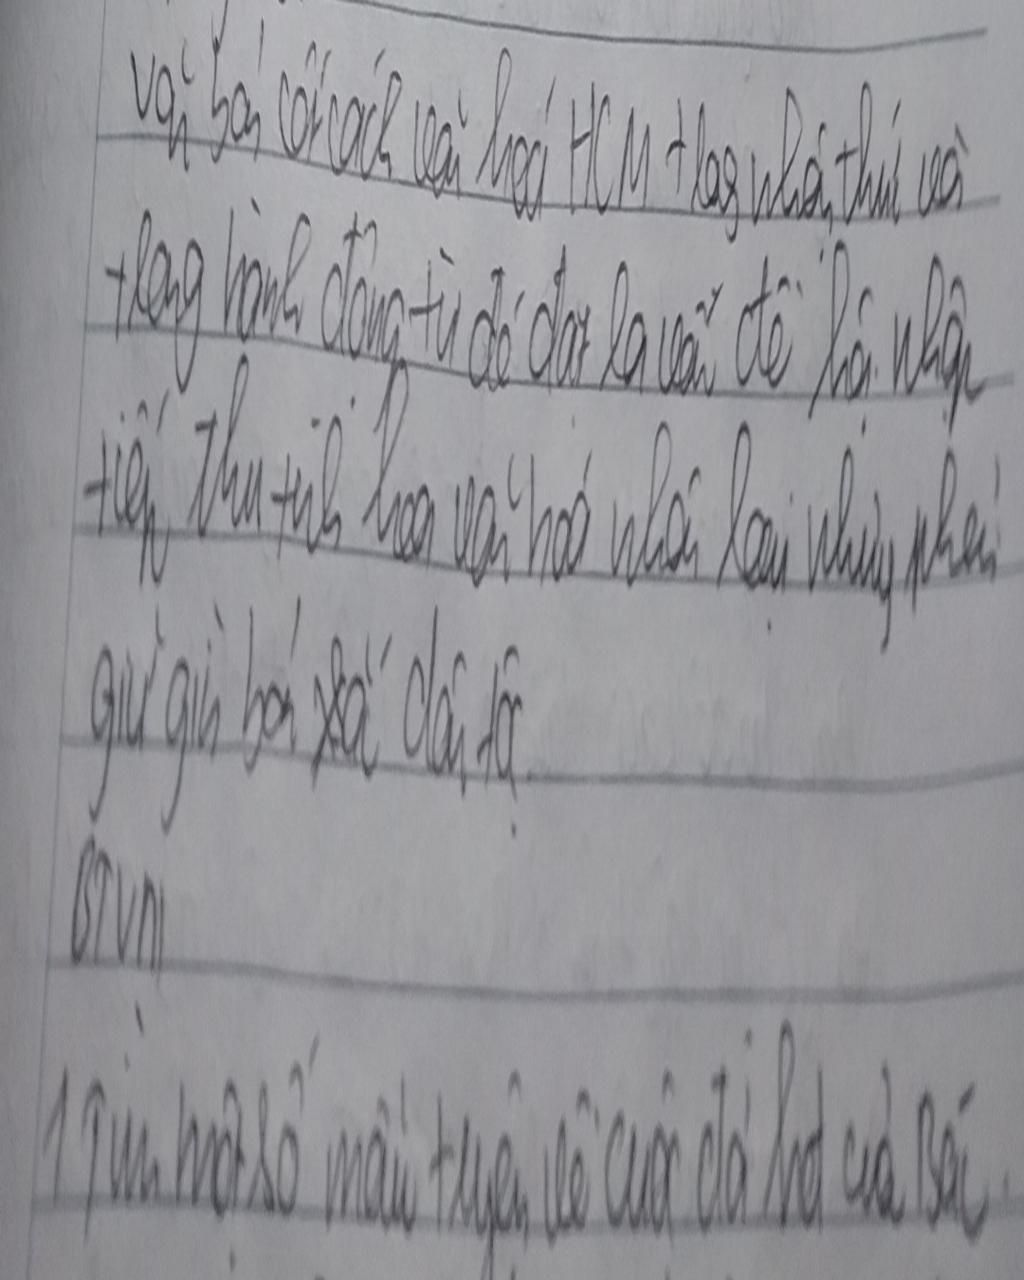 văn bản cốt cách văn hoá HCM trong nhận thức và
trong hành động từ đó đặt ra vấn đề hội nhập
tiếp thu tinh hoa văn hoá nhân loại nhưng phải
giữ gìn bản sắc dân tộc
BTVN
1 Tìm một số mẩu truyện về cuộc đời hoạt của Bác